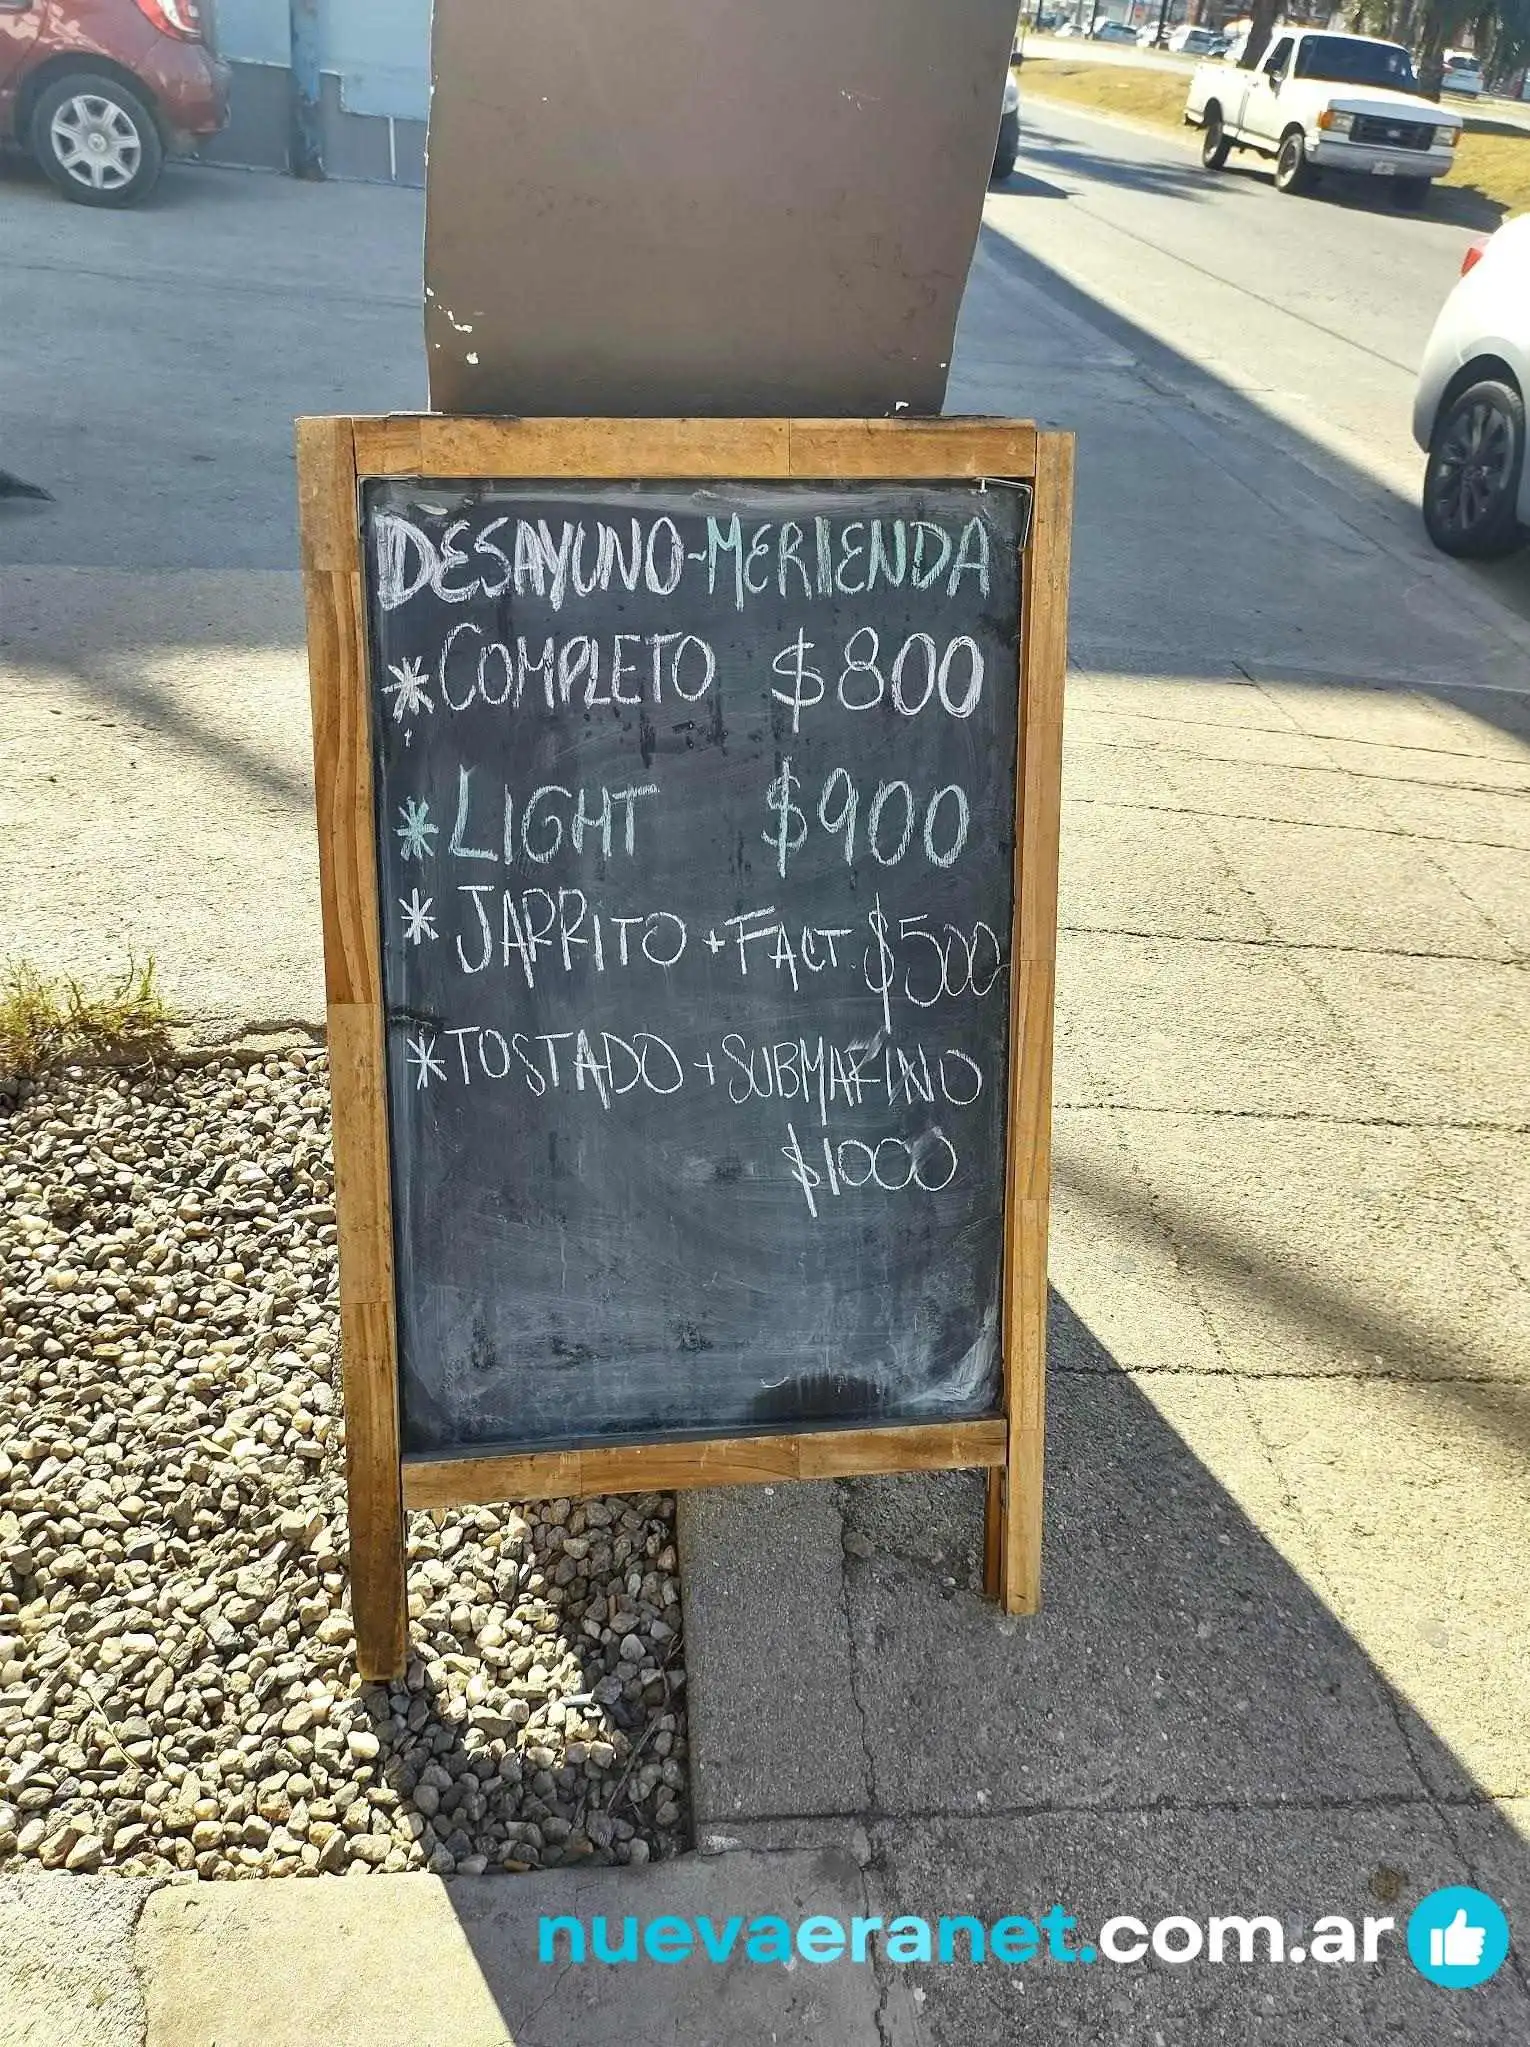 DESAYUNO-MERIENDA
*COMPLETO $800
*LIGHT $900
*JARRITO + FACT. $500
*TOSTADO + SUBMARINO
$1000
nuevaeranet.com.ar